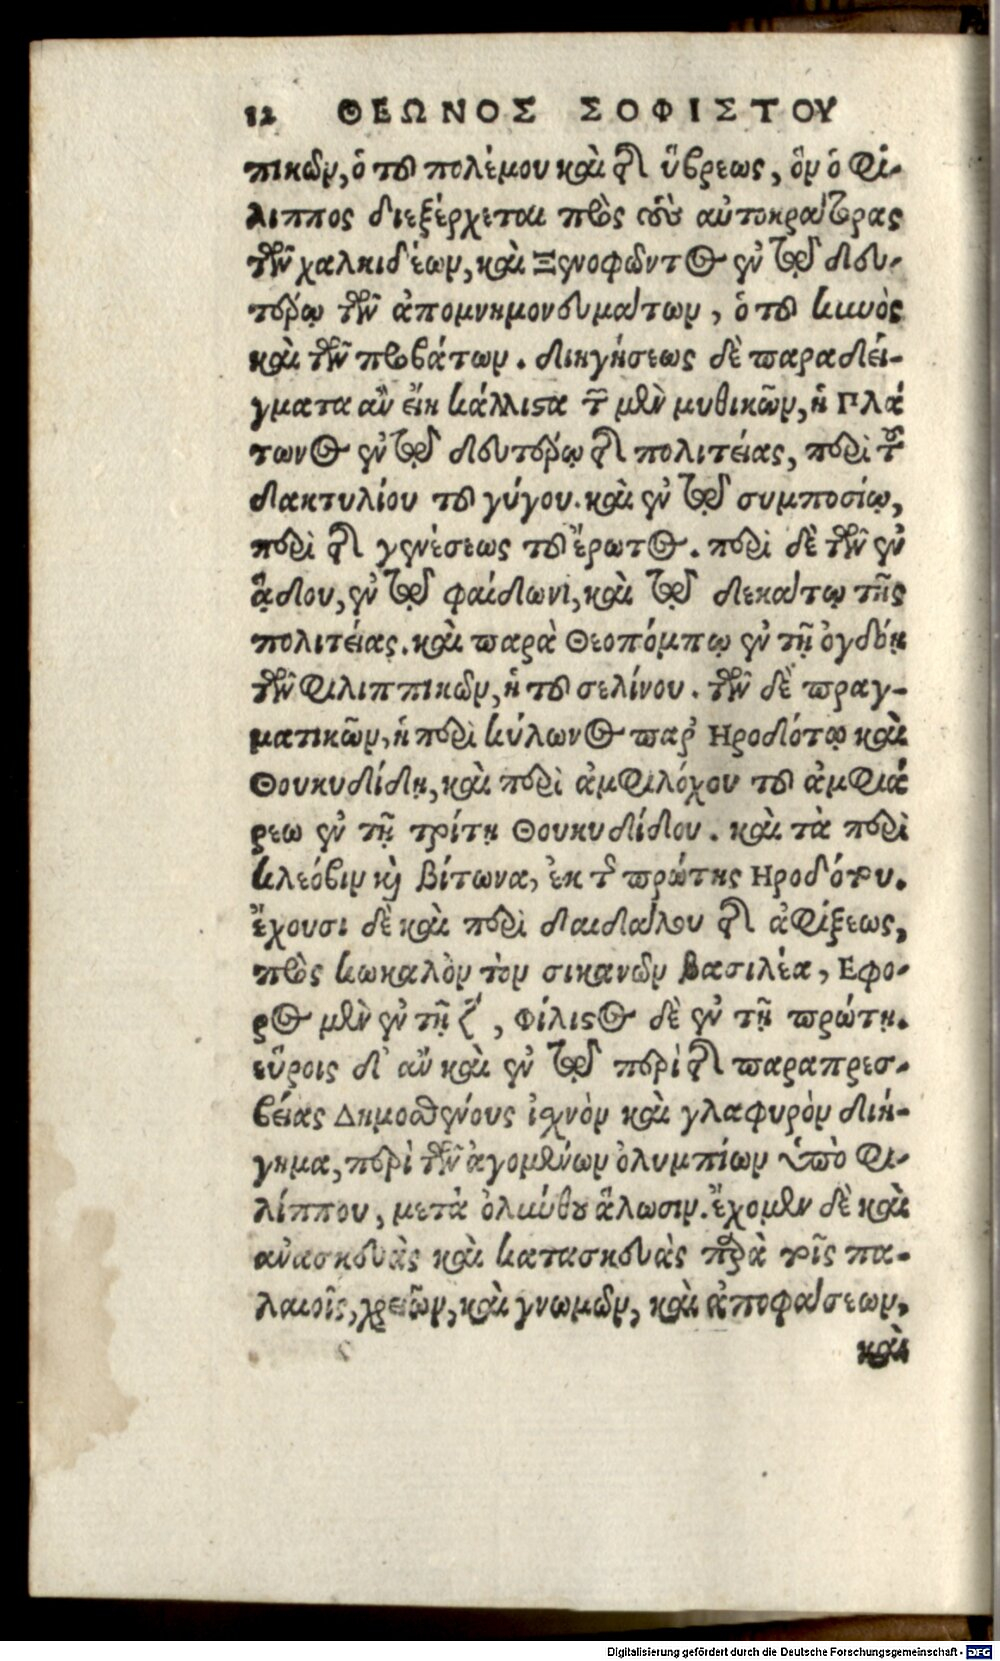 12 ΘΕΩΝΟΣ ΣΟΦΙΣΤΟΥ
πικῶν, ὁ τοῦ πολέμου καὶ τῆς ὕβρεως, ὃν ὁ Φί-
λιππος διεξέρχεται πρὸς τοὺς αὐτοκράτορας
τῶν χαλκιδέων, καὶ Ξενοφῶντος ἐν τῷ δευ-
τέρῳ τῶν ἀπομνημονευμάτων, ὁ τοῦ κυνὸς
καὶ τῶν προβάτων. διηγήσεως δὲ παραδεί-
γματα ἂν εἴη κάλλιστα τῶν μὲν μυθικῶν, ἡ Πλά
τωνος ἐν τῷ δευτέρῳ τῆς πολιτείας, περὶ τοῦ
δακτυλίου τοῦ γύγου. καὶ ἐν τῷ συμποσίῳ,
περὶ τῆς γενέσεως τοῦ ἔρωτος. περὶ δὲ τῶν ἐν
ᾅδου, ἐν τῷ φαίδωνι, καὶ τῷ δεκάτῳ τῆς
πολιτείας. καὶ παρὰ Θεοπόμπῳ ἐν τῇ ὀγδόῃ
τῶν Φιλιππικῶν, ἡ τοῦ σελίνου. τῶν δὲ πραγ-
ματικῶν, ἡ περὶ κύλωνος παρ' Ηροδότῳ καὶ
Θουκυδίδῃ, καὶ περὶ ἀμφιλόχου τοῦ ἀμφιά
ρεω ἐν τῇ τρίτῃ Θουκυδίδου. καὶ τὰ περὶ
κλέοβιν καὶ βίτωνα, ἐκ τῆς πρώτης Ηροδότου.
ἔχουσι δὲ καὶ περὶ δαιδάλου τῆς ἀφίξεως,
πρὸς κώκαλὸν τὸν σικανῶν βασιλέα, Εφο-
ρος μὲν ἐν τῇ ζ', Φίλιστος δὲ ἐν τῇ πρώτῃ.
εὕροις δ' ἂν καὶ ἐν τῷ περὶ τῆς παραπρεσ-
βείας Δημοσθένους ἰσχνὸν καὶ γλαφυρὸν διή-
γημα, περὶ τῶν ἀγομένων ὀλυμπίων ὑπὸ Φι-
λίππου, μετὰ ὀλύνθου ἅλωσιν. ἔχομεν δὲ καὶ
ἀνασκευὰς καὶ κατασκευὰς παρὰ τοῖς πα-
λαιοῖς, χρειῶν, καὶ γνωμῶν, καὶ ἀποφάσεων,
καὶ
Digitalisierung gefördert durch die Deutsche Forschungsgemeinschaft - DFG